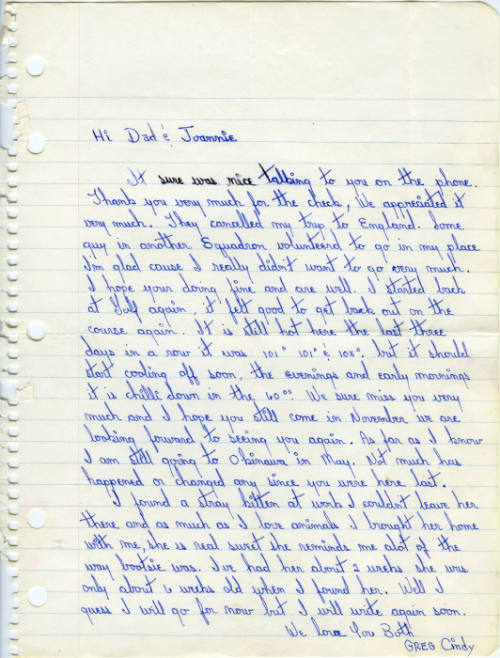 Hi Dad & Joannie
It sure was nice talking to you on the phone.
Thank you very much for the check, We appreciated it
very much. They cancelled my trip to England. Some
guy in another Squadron volunteerd to go in my place
I'm glad cause I really didn't want to go very much.
I hope your doing fine and are well. I started back
at Golf again, it felt good to get back out on the
course again. It is still hot here the last three
days in a row it was 101° 101° & 102°. but it should
start cooling off soon, the evenings and early mornings
it is chilli down in the 60°s. We sure miss you very
much and I hope you still come in November we are
looking forward to seeing you again. As far as I know
I am still going to Okinawa in May. Not much has
happened or changed any since you were here last.
I found a stray kitten at work I couldn't leave her
there and as much as I love animals I brought her home
with me, she is real sweet she reminds me alot of the
way bootsie was. I've had her about 2 weeks she was
only about 6 weeks old when I found her. Well I
guess I will go for now but I will write again soon.
We love You Both
GREG Cindy